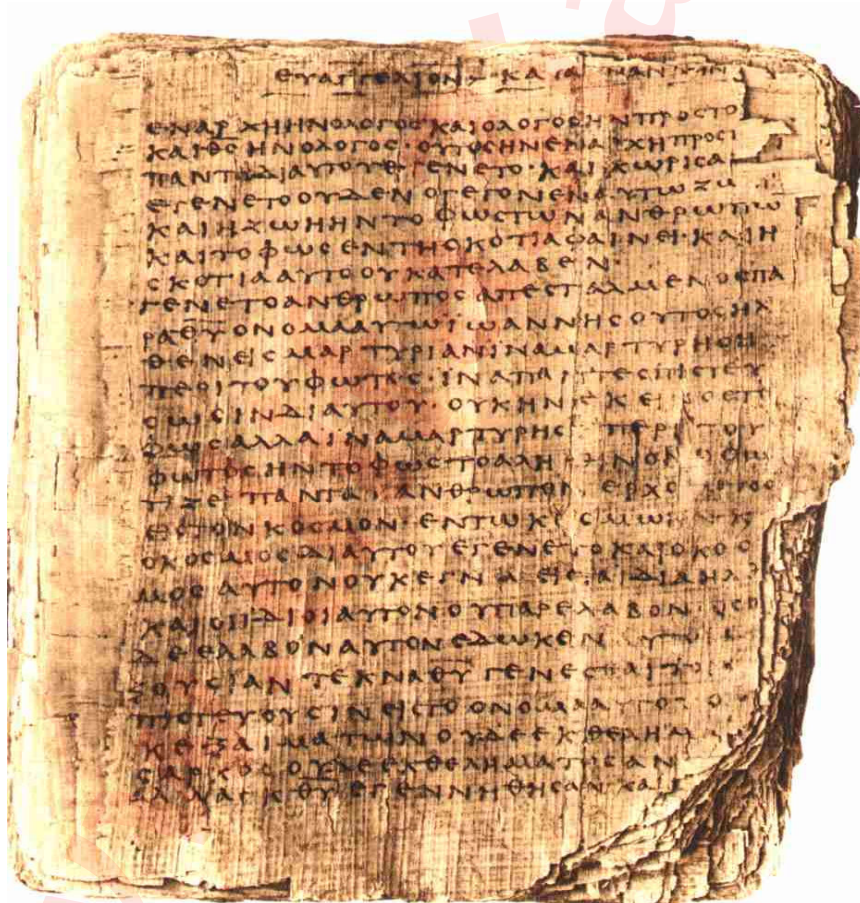 ΕΥΑΓΓΕΛΙΟΝ ΚΑΤΑ
ΕΝΑΡΧΗΗΝΟΛΟΓΟΣΚΑΙΟΛΟΓΟΣΗΝΠΡΟΣΤΟ
ΚΑΙΘΣΗΝΟΛΟΓΟΣ·ΟΥΤΟΣΗΝΕΝΑΡΧΗΠΡΟΣ
ΠΑΝΤΑΔΙΑΥΤΟΥΕΓΕΝΕΤΟ·ΚΑΙΧΩΡΙΣΑ
ΕΓΕΝΕΤΟΟΥΔΕΝΟΓΕΓΟΝΕΝΑΥΤΩΖΩ
ΚΑΙΗΖΩΗΗΝΤΟΦΩΣΤΩΝΑΝΘΡΩΠΩ
ΚΑΙΤΟΦΩΣΕΝΤΗΣΚΟΤΙΑΦΑΙΝΕΙ·ΚΑΙΗ
ΣΚΟΤΙΑΑΥΤΟΟΥΚΑΤΕΛΑΒΕΝ·
ΓΕΝΕΤΟΑΝΘΡΩΠΟΣΑΠΕΣΤΑΛΜΕΝΟΣΠΑ
ΡΑΘΥΟΝΟΜΑΑΥΤΩΙΩΑΝΝΗΣΟΥΤΟΣΗΛ
ΘΕΝΕΙΣΜΑΡΤΥΡΙΑΝΙΝΑΜΑΡΤΥΡΗΣΗ
ΠΕΡΙΤΟΥΦΩΤΟΣ·ΙΝΑΠΑΝΤΕΣΠΙΣΤΕΥ
ΣΩΣΙΝΔΙΑΥΤΟΥ·ΟΥΚΗΝΕΚΕΙΝΟΣΤΟ
ΦΩΣΑΛΛΑΙΝΑΜΑΡΤΥΡΗΣΗ ΠΕΡΙΤΟΥ
ΦΩΤΟΣΗΝΤΟΦΩΣΤΟΑΛΗΘΙΝΟΝ
ΤΙΖΕΙΠΑΝΤΑΑΝΘΡΩΠΟΝ ΕΡΧΟ
ΕΙΣΤΟΝΚΟΣΜΟΝ·ΕΝΤΩΚΟΣΜΩ
ΟΚΟΣΜΟΣΔΙΑΥΤΟΥΕΓΕΝΕΤΟΚΑΙΟΚΟΣ
ΜΟΣΑΥΤΟΝΟΥΚΕΓΝΩ ΕΙΣΤΑΙΔΙΑΗΛ
ΚΑΙΟΙΙΔΙΟΙΑΥΤΟΝΟΥΠΑΡΕΛΑΒΟΝ·ΟΣΟΙ
ΔΕΕΛΑΒΟΝΑΥΤΟΝΕΔΩΚΕΝ
ΞΟΥΣΙΑΝ ΤΕΚΝΑΘΥΓΕΝΕΣΘΑΙΤΟΙΣ
ΠΙΣΤΕΥΟΥΣΙΝΕΙΣΤΟΟΝΟΜΑΑΥΤΟΥ
ΚΕΞΑΙΜΑΤΩΝΟΥΔΕΕΚΘΕΛΗΜ
ΣΑΡΚΟΣΟΥΔΕΕΚΘΕΛΗΜΑΤΟΣΑΝ
ΑΛΛΑΕΚΘΥΕΓΕΝΝΗΘΗΣΑΝΚΑΙ